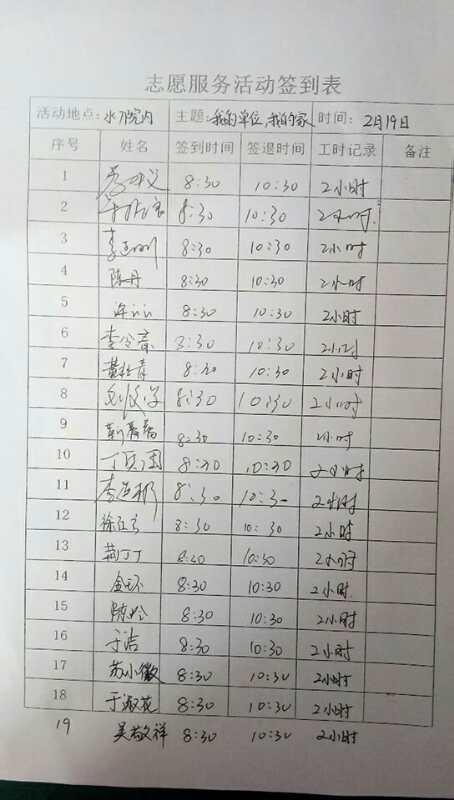 志愿服务活动签到表
活动地点：水 院内 主题：我的单位,我的家 时间： 2月19日
序号 姓名 签到时间 签退时间 工时记录 备注
1 8:30 10:30 2小时
2 8:30 10:30 2小时
3 李 8:30 10:30 2小时
4 陈丹 8:30 10:30 2小时
5 许 8:30 10:30 2小时
6 李 8:30 10:30 2小时
7 黄 青 8:30 10:30 2小时
8 8:30 10:30 2小时
9 8:30 10:30 2小时
10 丁 8:30 10:30 2小时
11 李 彬 8:30 10:30 2小时
12 徐 8:30 10:30 2小时
13 丁丁 8:30 10:30 2小时
14 金环 8:30 10:30 2小时
15 陈 8:30 10:30 2小时
16 于洁 8:30 10:30 2小时
17 苏小微 8:30 10:30 2小时
18 于淑花 8:30 10:30 2小时
19 吴敬祥 8:30 10:30 2小时